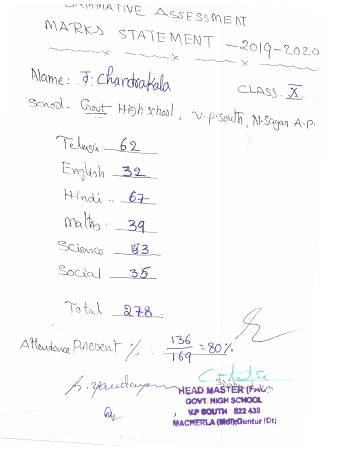 SUMMATIVE ASSESSMENT
MARKS STATEMENT - 2019-2020
Name: J. Chandrakala
CLASS. X
School - Govt High school, V.p.south, N.Sagar A.P.
Telugu 62
English 32
Hindi .. 67
Maths: 39
Science 43
Social 35
Total 278
Attendance present %: 136/169 = 80%
HEAD MASTER
GOVT. HIGH SCHOOL
V.P SOUTH 522 439
MACHERLA (Mdl) Guntur (Dt)